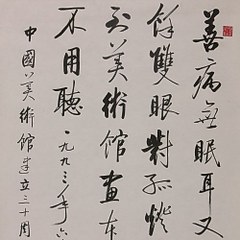 善病無眠耳又
餘雙眼對孤燈
到美術館画本
不用聽一九九三年六
中國美術館建立三十周